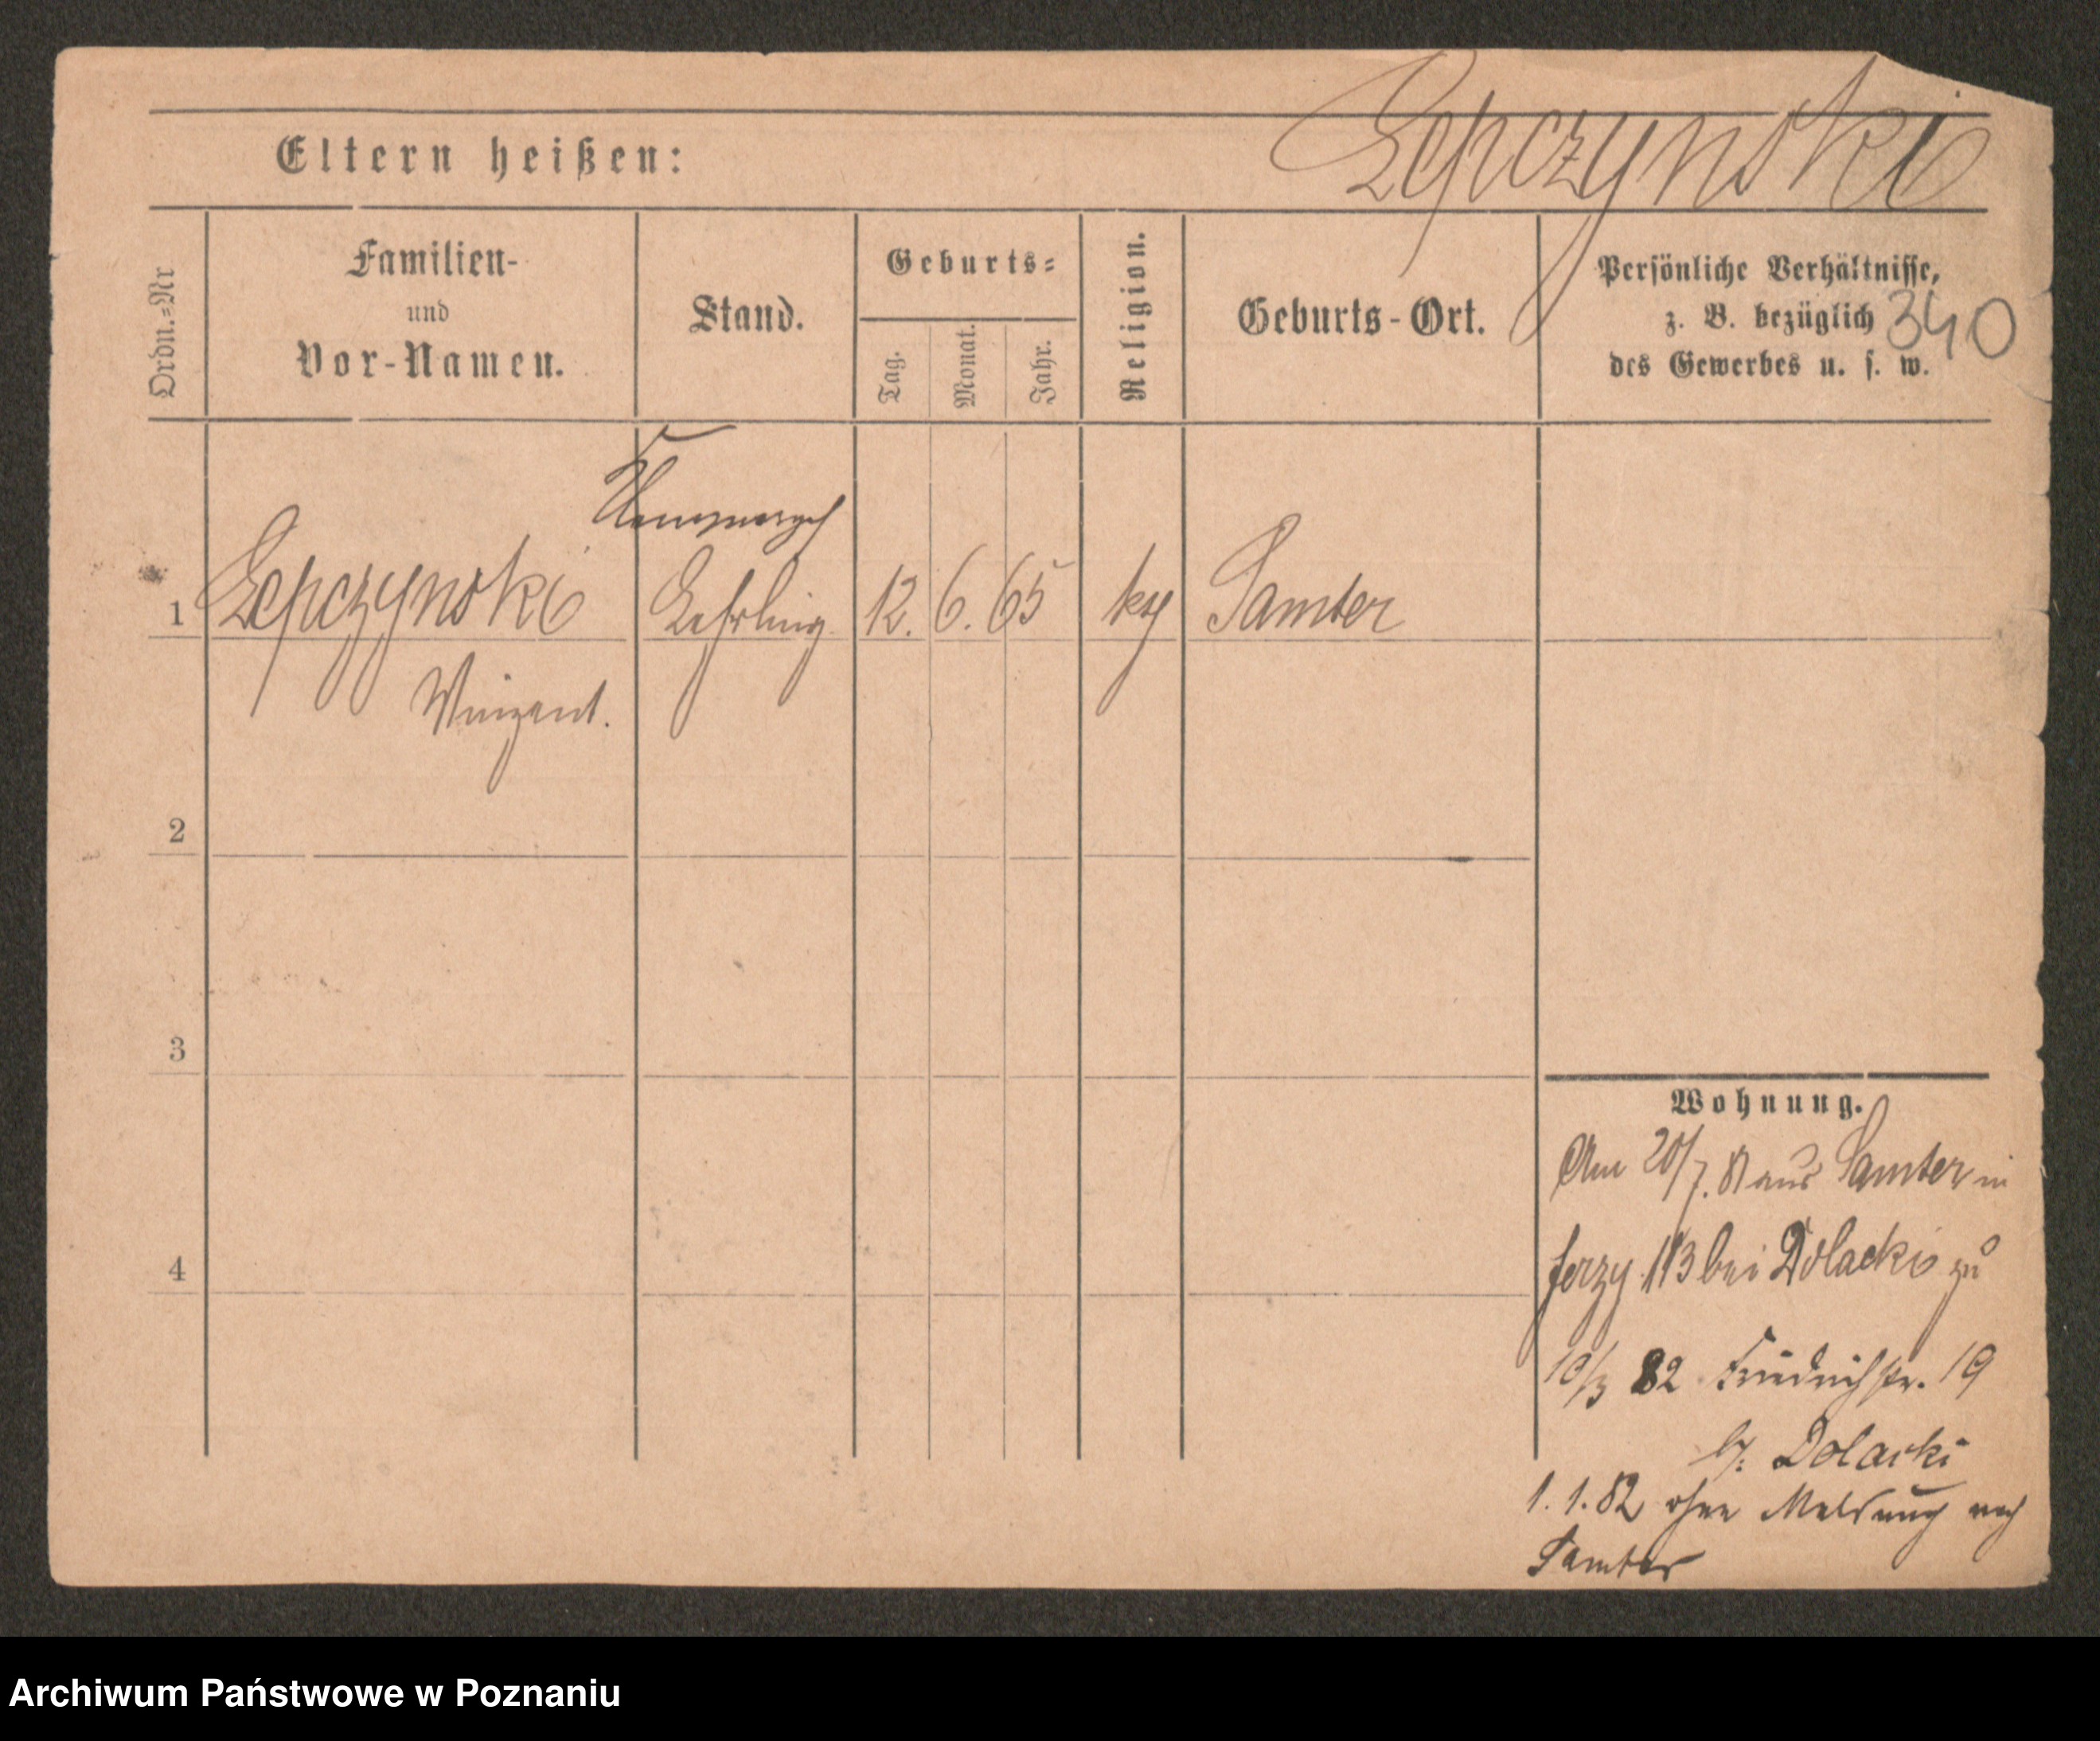 Lepczynski
Eltern heißen:
Ordn.=Nr
Familien-
und
Vor-Namen.
Stand.
Geburts=
Tag.
Monat.
Jahr.
Religion.
Geburts-Ort.
Persönliche Verhältnisse,
z. B. bezüglich
des Gewerbes u. s. w.
340
1 Lepczynski Lehrling 12. 6. 65 kth Samter
Vinzent.
2
3
4
Wohnung.
Am 20/7. 81 aus Samter in
Jerzy 113 bei Dolacki zu
10/3 82 Friedrichstr. 19
b/. Dolacki
1. 1. 82 ohne Meldung nach
Samter
Archiwum Państwowe w Poznaniu